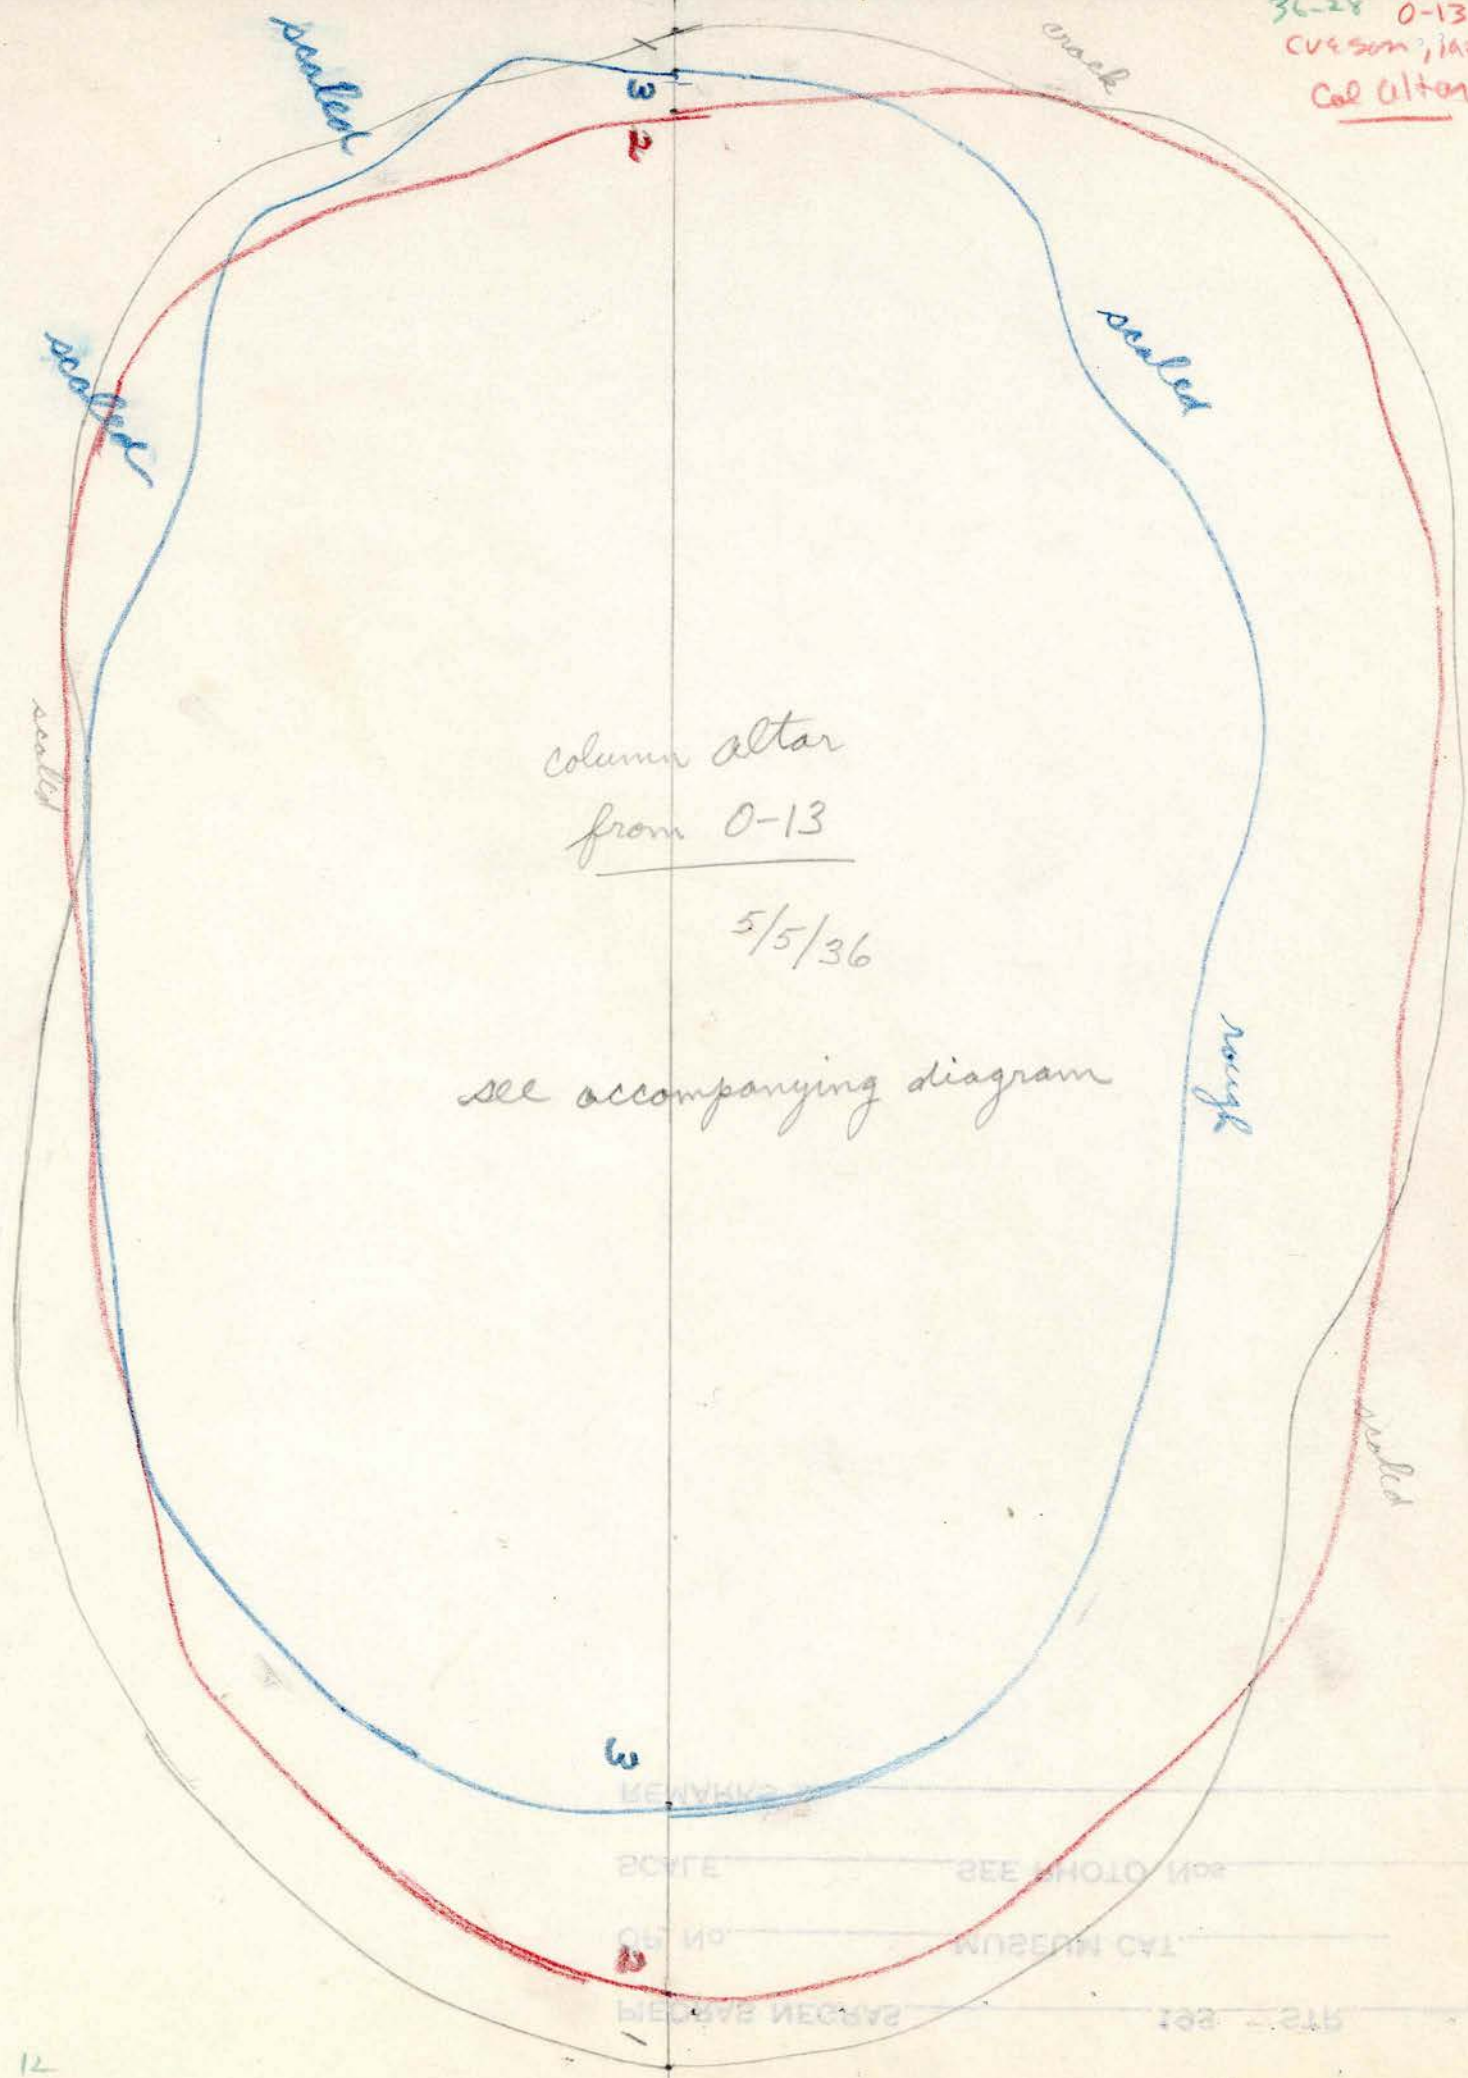 36-28 0-13
Col altar
crack
scaled
3
2
scaled
scaled
scaled
column altar
from 0-13
5/5/36
see accompanying diagram
rough
scaled
3
REMARKS
SCALE SEE PHOTO Nos
OP. No. MUSEUM CAT.
2
PIEDRAS NEGRAS 193 - STR
1
12